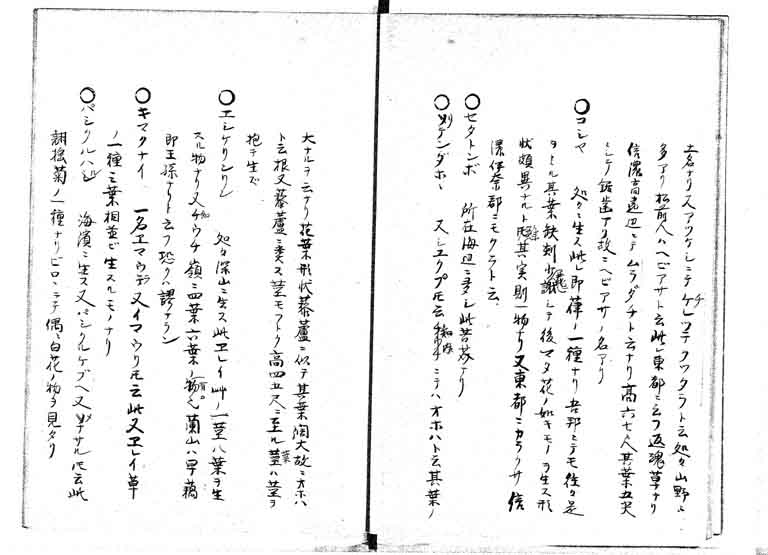 土名ナリ又アツケシニテケレマテフツタラト云処々山野ニ
多アリ松前人ハヘビアサト云此レ東都ニ云フ返魂草ナリ
信濃高遠辺ニテムラダチト云ナリ高六七尺其葉五尖
ニシテ鋸歯アリ故ニヘビアサノ名アリ
○コシヤ 処々ニ生ス此レ即葎ノ一種ナリ吾邦ニテモ往々是
ヲミル其葉缺刻少 シテ後マタ花ノ如キモノヲ生ス形
状頗異ナルト 其実則一物ナリ又東都ニカラクサ信
濃伊奈郡ニモクラト云
○セタトンボ 所在海辺ニ多シ此苦芺ナリ
○ シケンダホ 又シエクプ 云 ニテハオホハト云其葉ノ
大ナルヲ云ナリ花葉形状藜蘆ニ似テ其葉闊大故ニオホハ
ト云根又藜蘆ニ類ス茎モマトク高四五尺ニ至ル葉ハ茎ヲ
抱テ生ズ
○エシケリムリム 処々深山ニ生ス此ヱレイ艸ノ一茎八葉ヲ生
スル物ナリ又ケウチ嶺ニ四葉六葉ノ物有之蘭山ハ早藕
即王孫ナリト云フ恐クハ謬ナラン
○キマクナイ 一名ヱマウデラ又イマウリモ云此又ヱレイ草
ノ一種三葉相並ビ生スルモノナリ
○パシクルハシ 海濱ニ生ス又パシクルケプヘ又 ナサルモ云此
翻接菊ノ一種ナリピロニテ偶々白花ノ物ヲ見タリ